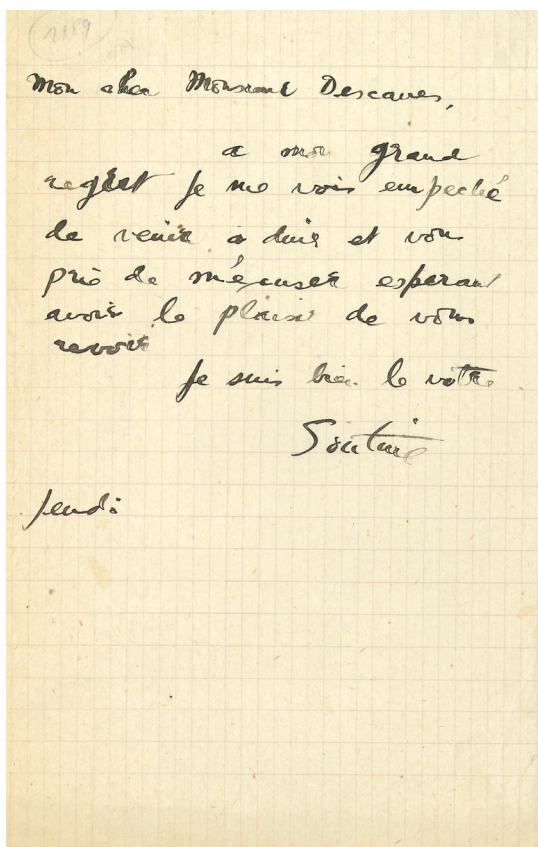 2189
Mon cher Monsieur Descaves,
a mon grand
regret je me vois empeché
de venir a diner et vous
prie de m'écuser esperant
avoir le plaisir de vous
revoir
je suis bien le votre
Soutine
Jeudi